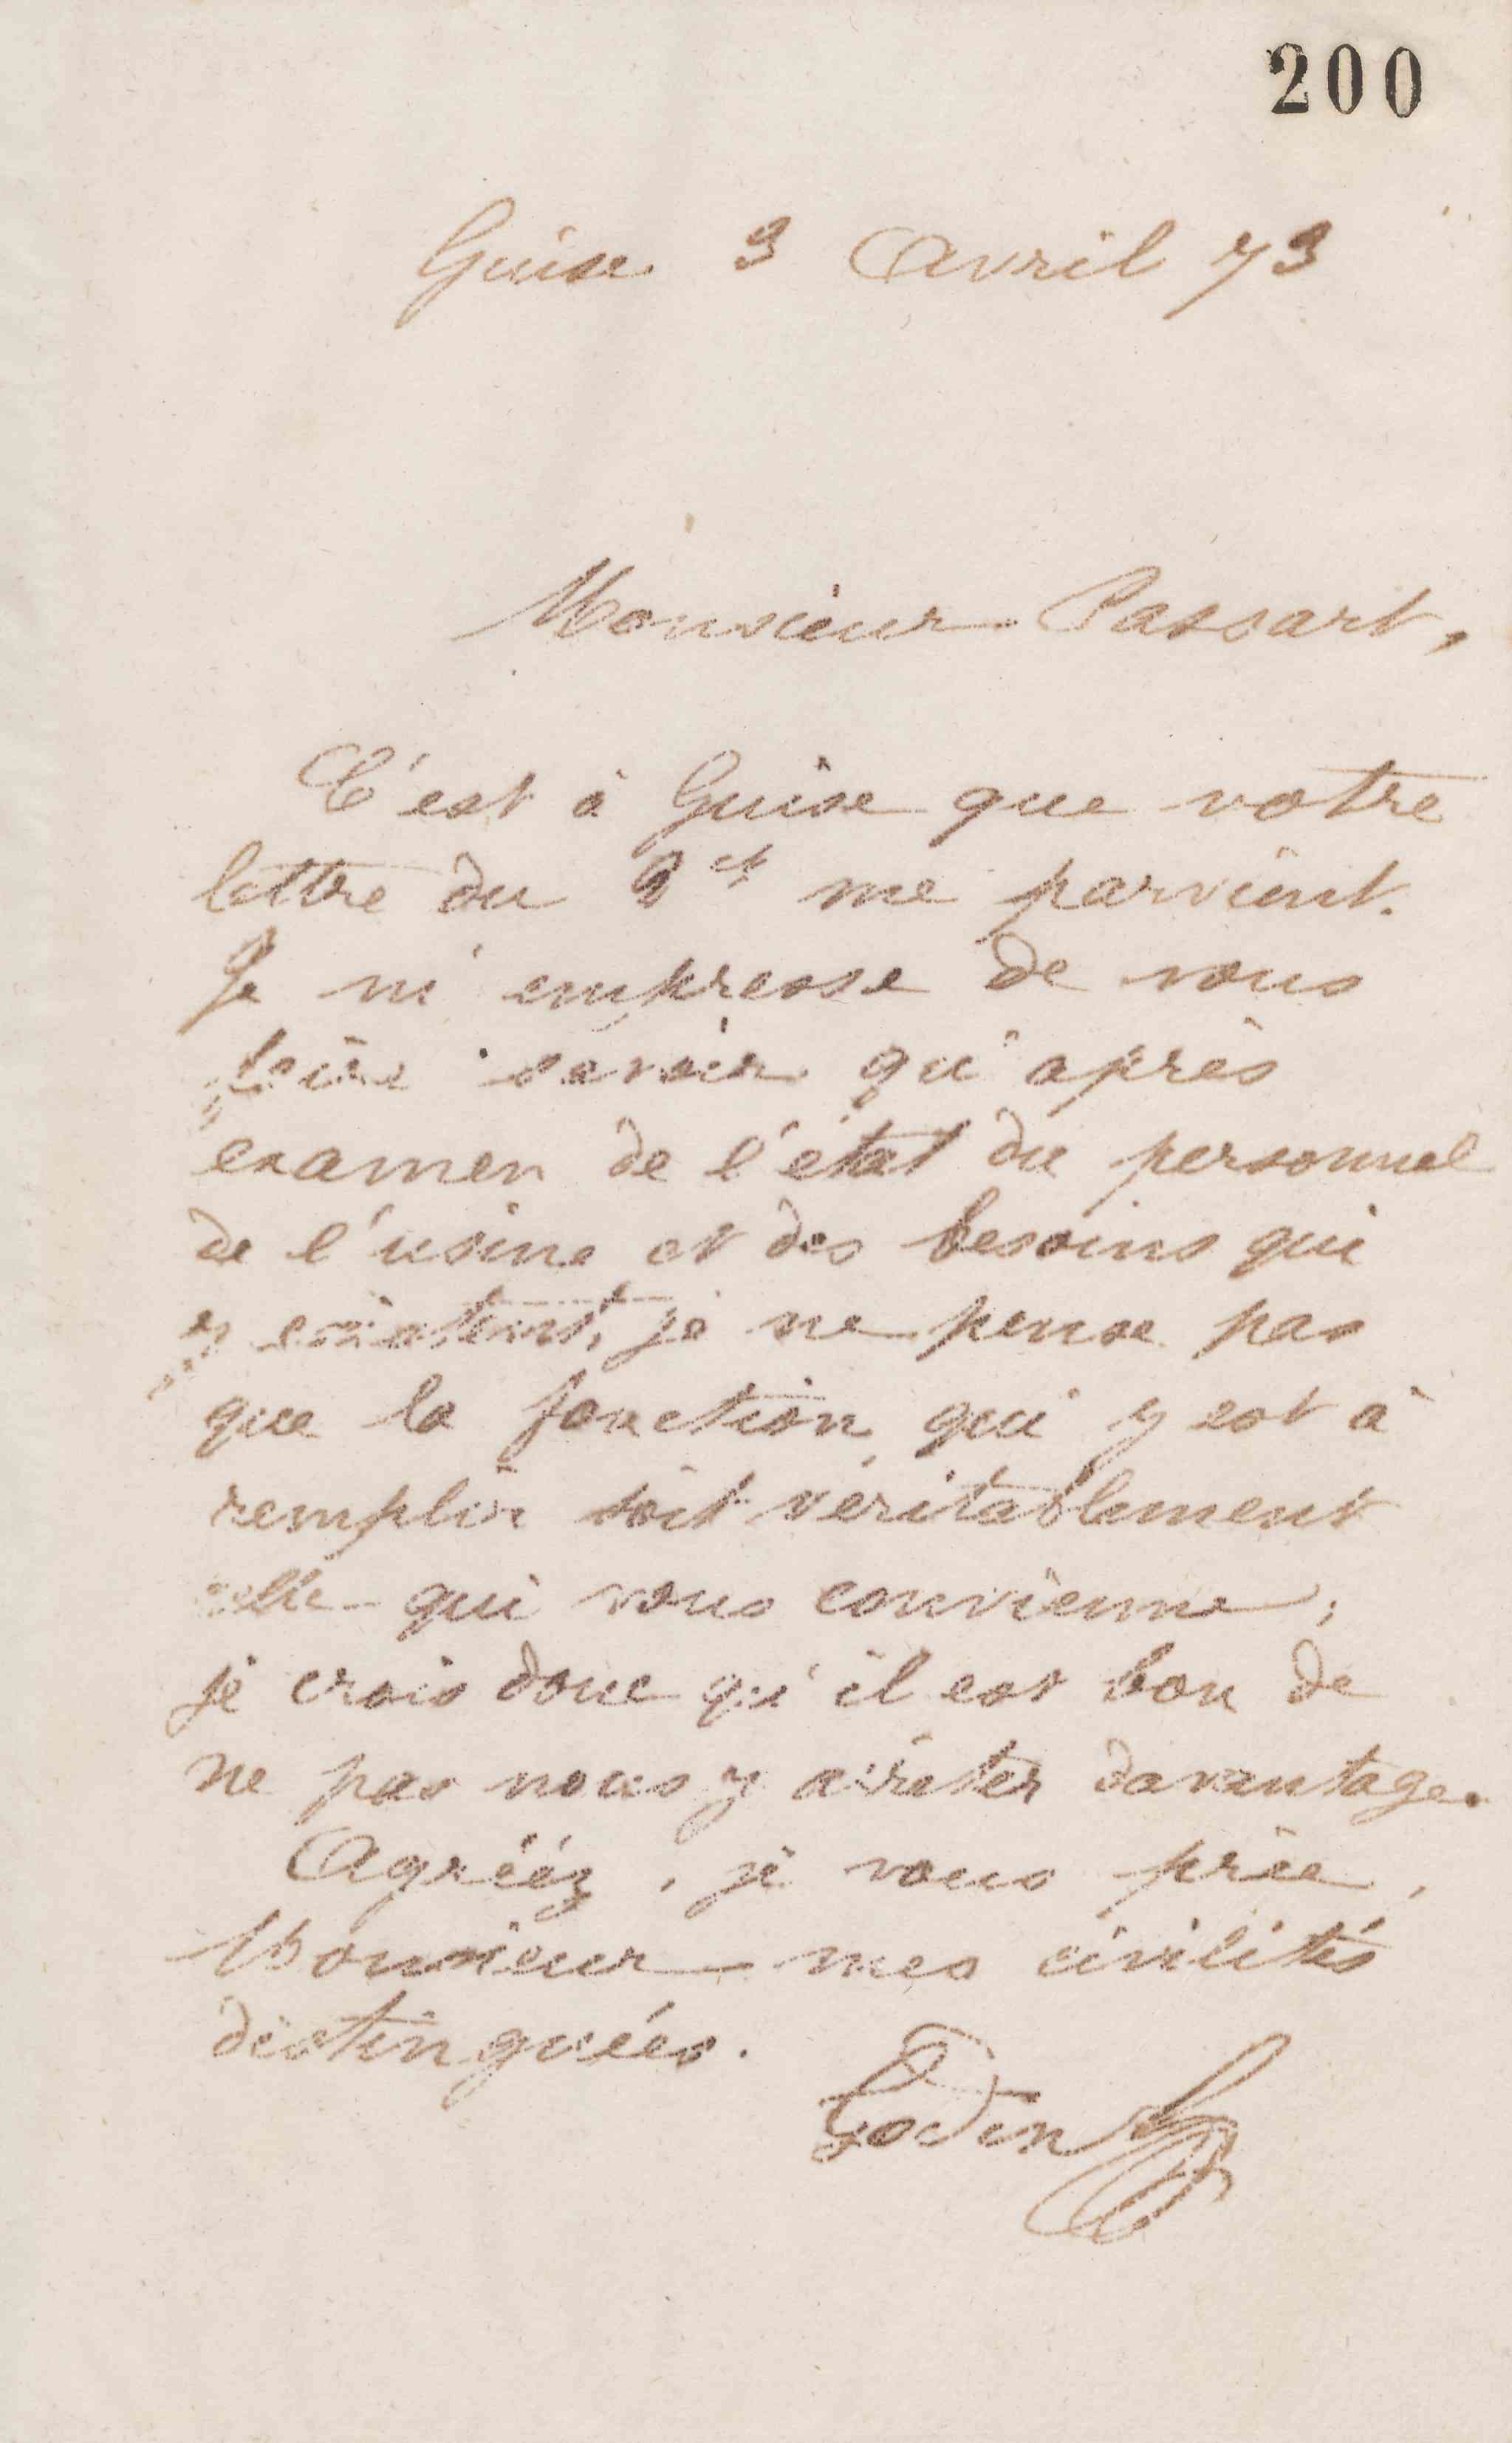 200
Guise 3 Avril 73
Monsieur Passart,
C'est à Guise que votre
lettre du 2 ct me parvient.
Je m'empresse de vous
faire savoir qu'après
examen de l'état du personnel
de l'usine et des besoins qui
y existent, je ne pense pas
que la fonction qui y est à
remplir soit véritablement
celle qui vous convienne;
je crois donc qu'il est bon de
ne pas nous y arrêter davantage.
Agréez, je vous prie,
Monsieur mes civilités
distinguées.
Godin